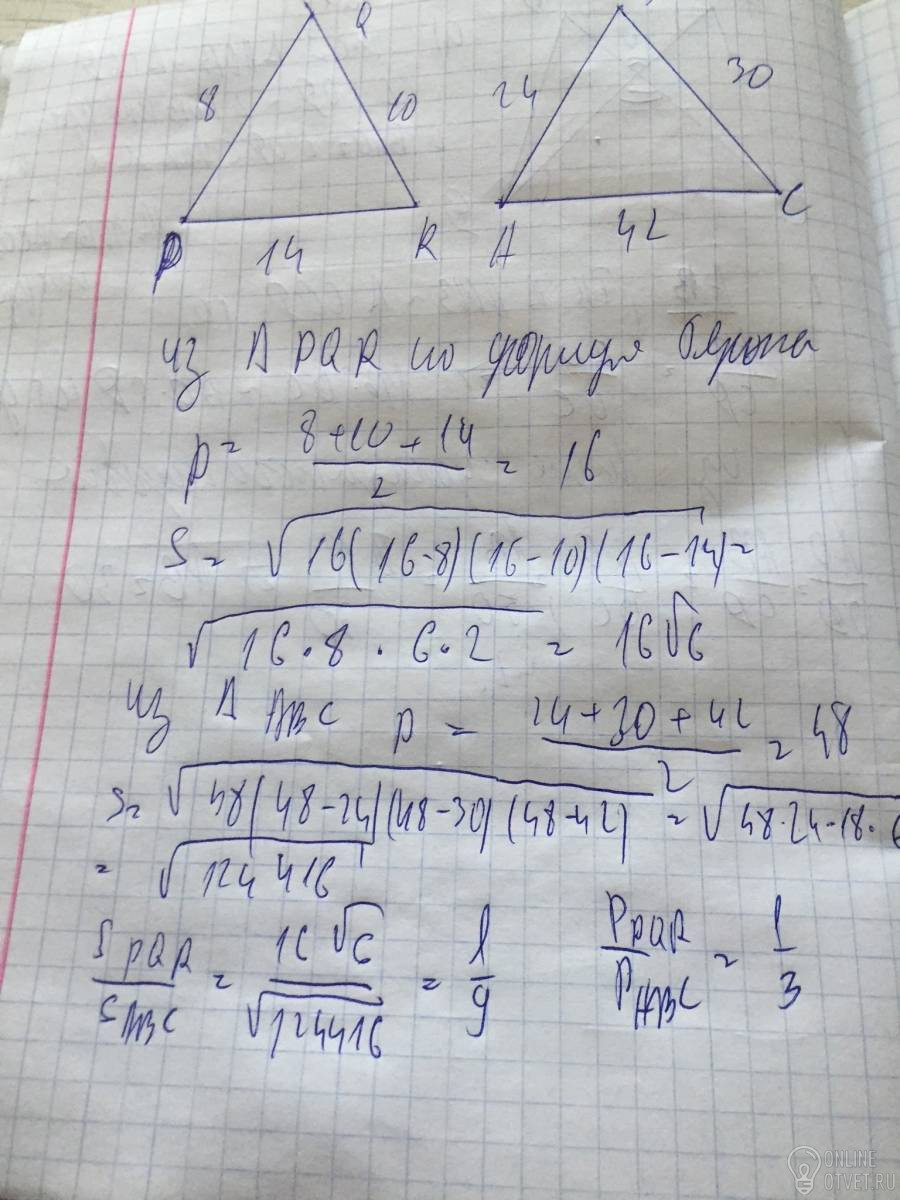 Q
8 10 24 30
P 14 R A 42 C
из Δ PQR по формуле Герона
p = 8+10+14 / 2 = 16
S = √16(16-8)(16-10)(16-14) =
√16·8·6·2 = 16√6
из Δ ABC p = 24+30+42 / 2 = 48
S = √48(48-24)(48-30)(48-42) = √48·24·18·6
= √124 416
S PQR / S ABC = 16√6 / √124416 = 1/9 P PQR / P ABC = 1/3
ONLINE
OTVET.RU